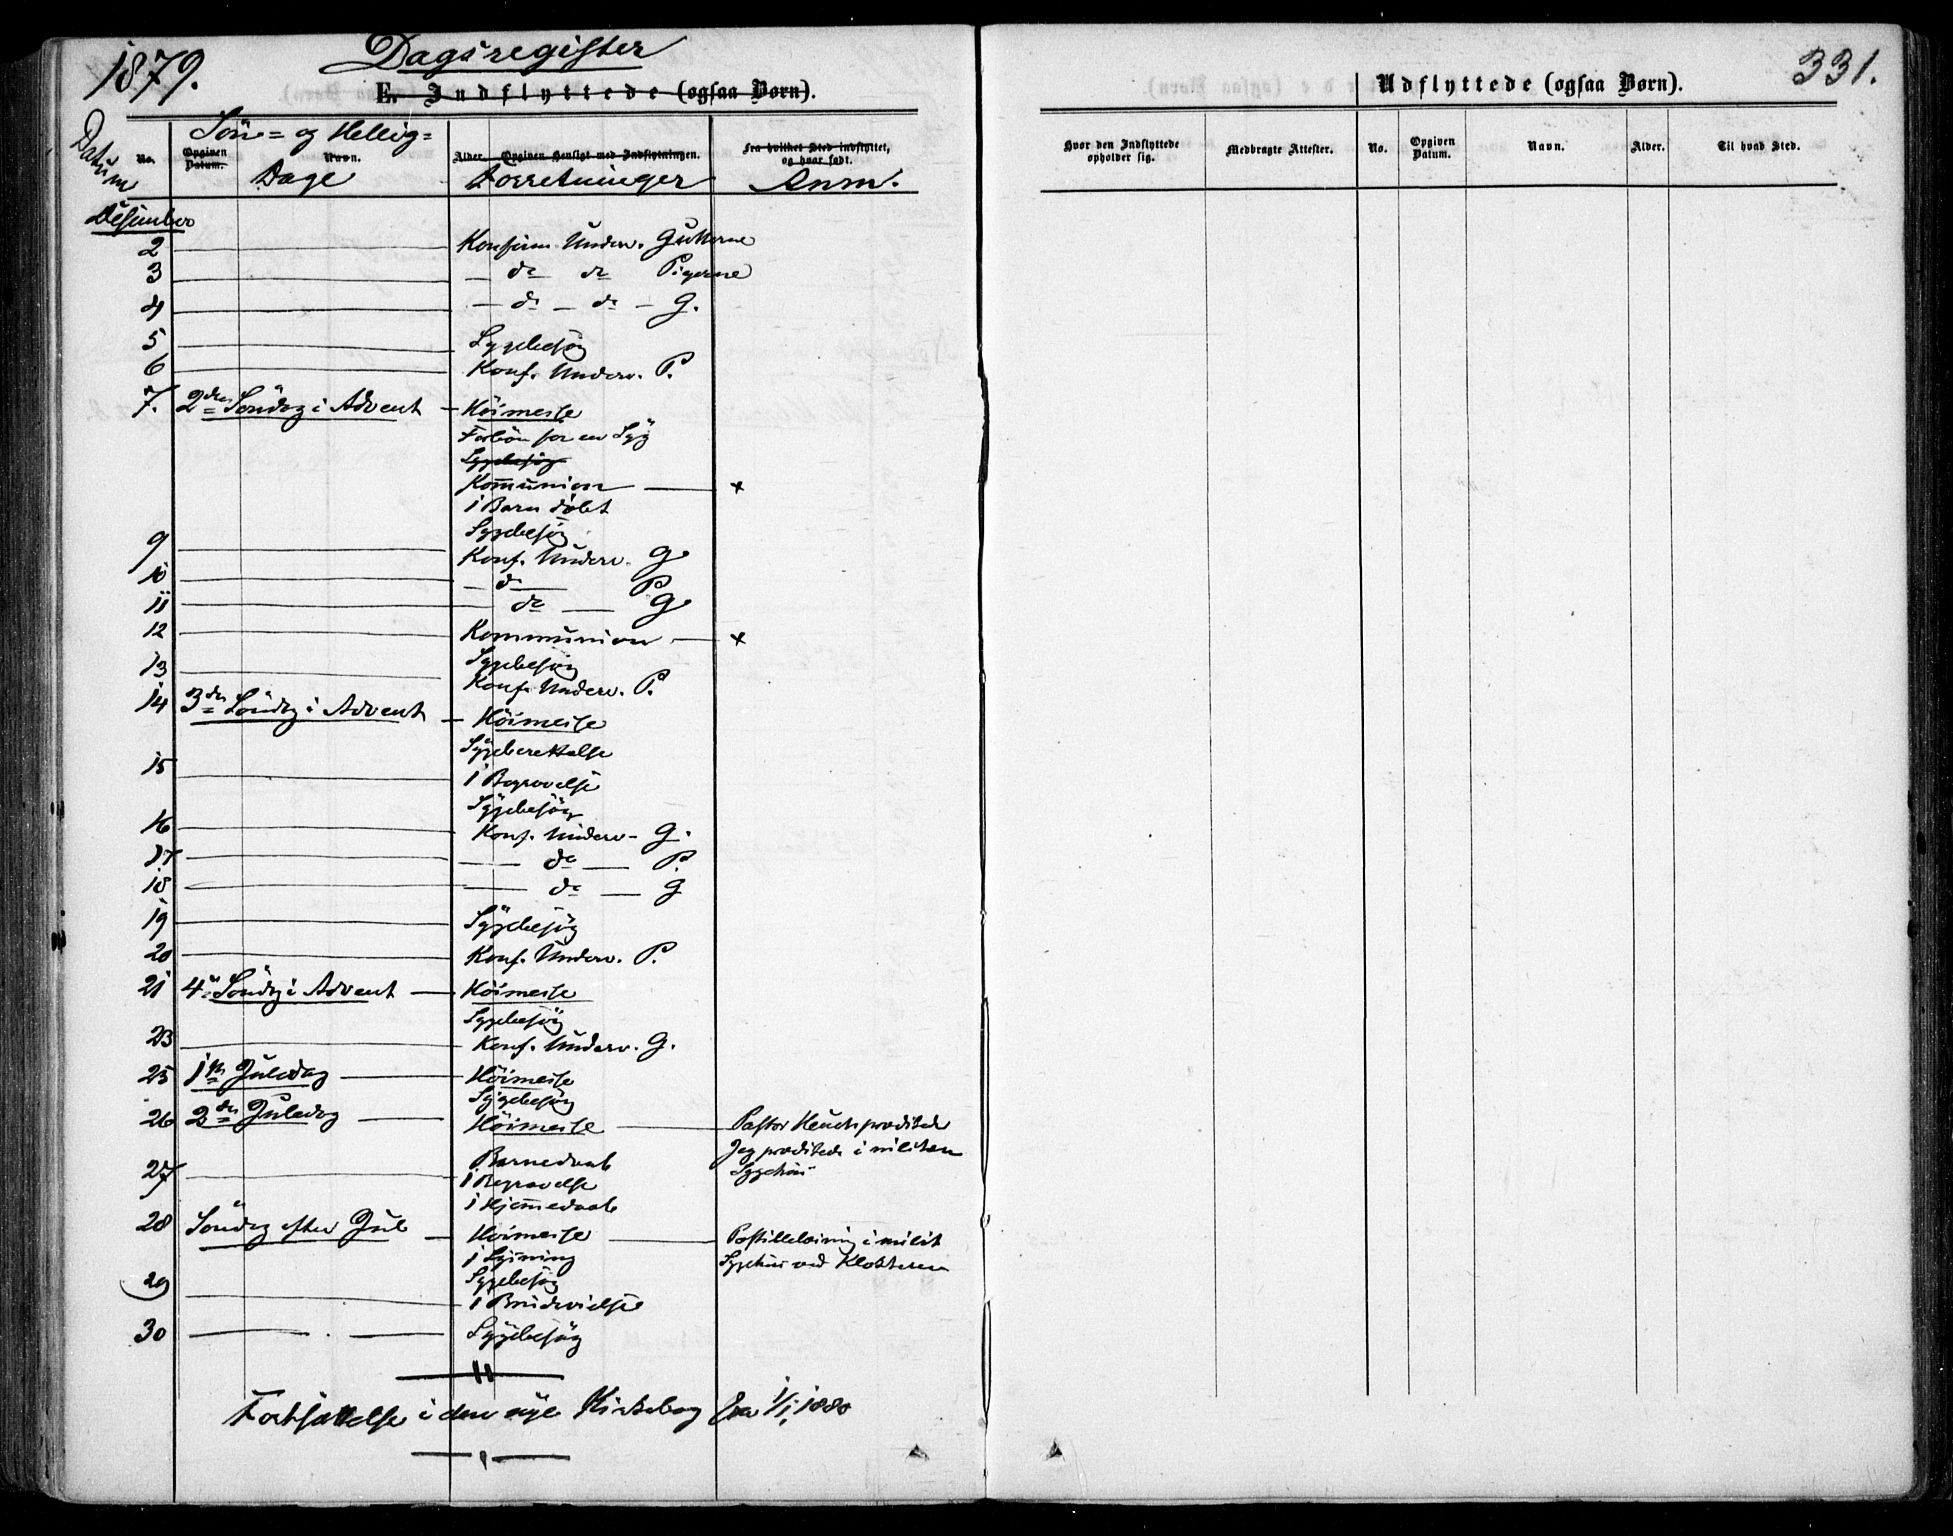 1879. Dagsregister
E. Indflyttede (ogsaa Børn).
Datum No. Opgiven Datum. Navn. Alder. Opgiven Hensigt med Indflytningen. Fra hvilket Sted indflyttet, og hvor født.
Søn- og Hellig-
Dage Forretninger Anm.
Desember
2 Konfirm. Underv. Gutterne
3 — do do Pigerne
4 — do — do — G.
5 Sygebesøg
6 Konf. Underv. P.
7. 2den Søndag i Advent — Höimesse
Forbön for en Syg
Sygebesøg
Kommunion — x
1 Barn döbt
Sygebesøg
9 Konf. Underv. G
10 — do — P
11 — do — G
12 Kommunion — x
Sygebesøg
13 Konf. Underv. P.
14 3die Söndag i Advent — Höimesse
Sygeberettelse
15 1 Begravelse
Sygebesög
16 Konf. Underv. G.
17 — do — P.
18 — do — G
19 Sygebesög
20 Konf. Underv. P.
21 4. Söndag i Advent — Höimesse
Sygebesög
23 Konf. Underv. G.
25 1ste Juledag — Höimesse
Sygebesög
26 2den Juledag — Höimesse — Pastor Heuch prædikede
Jeg prædikede i militære
Barnedaab Sygehus
27 1 Begravelse
1 Hjemmedaab
28 Söndag efter Jul — Höimesse — Postillelæsning i milit
1 Sygehus ved Klokkeren
Sygebesög
29 1 Brudevielse
30 — . — Sygebesög
Fortsættelse i den nye Kirkebog fra 1/1 1880
331.
Udflyttede (ogsaa Børn).
Hvor den Indflyttede opholder sig. Medbragte Attester. No. Opgiven Datum. Navn. Alder. Til hvad Sted.